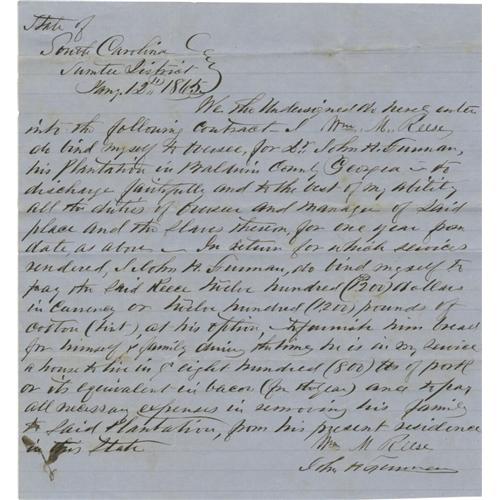 State of
South Carolina
Sumter District
Jany. 12th 1865
We the Undersigned do here enter
into the following contract I Wm. M. Reese
do bind myself to oversee, for Dr. John H. Furman,
his Plantation in Baldwin County Georgia - to
discharge faithfully and to the best of my ability
all the duties of Overseer and Manager of said
place and the slaves thereon, for one year from
date, as above - In return for which services
rendered, I John H. Furman, do bind myself to
pay the said Reese twelve hundred (1200) dollars
in currency or twelve hundred (1200) pounds of
cotton (lint) at his option, to furnish him bread
for himself & family during the time he is in my service
a house to live in & eight hundred (800) lbs of pork
or its equivalent in bacon (for the year) and to pay
all necessary expenses in removing his family
to said Plantation, from his present residence
in this State
Wm M Reese
John H Furman